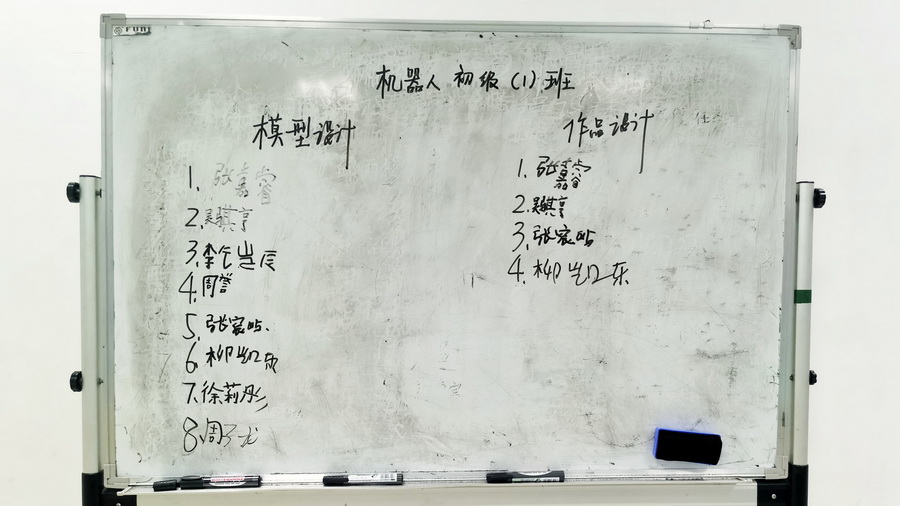 FUNI
机器人初级(1)班
模型设计
1. 张嘉睿
2. 吴骐亨
3. 李仑岂辰
4. 周誉
5. 张宸皓.
6. 柳凯欣
7. 徐莉彤
8. 周子龙
作品设计
1. 张嘉睿
2. 吴骐亨
3. 张宸皓
4. 柳凯东